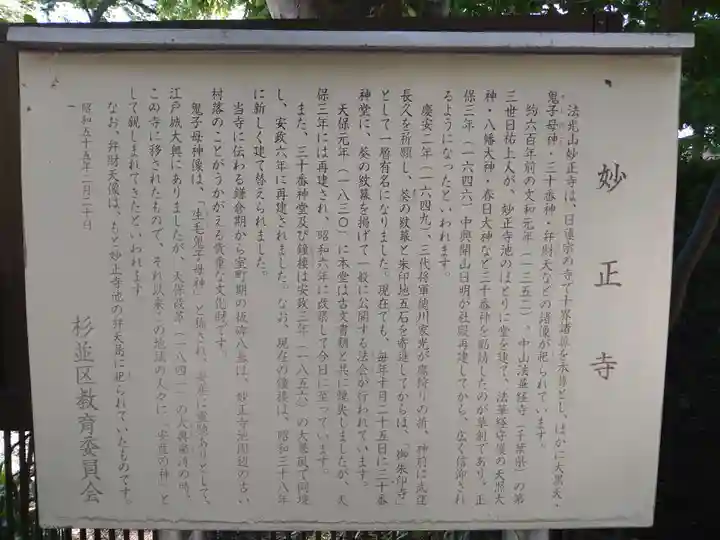 妙正寺
法光山妙正寺は、日蓮宗の寺で十界諸尊を本尊とし、ほかに大黒天・
鬼子母神・三十番神・弁財天などの諸像が祀られています。
約六百年前の文和元年（一三五二）、中山法華経寺（千葉県）の第
三世日祐上人が、妙正寺池のほとりに堂を建て、法華経守護の天照大
神・八幡大神・春日大神など三十番神を勧請したのが草創であり、正
保三年（一六四六）中興開山日明が社殿再建してから、広く信仰され
るようになったといわれます。
慶安二年（一六四九）、三代将軍徳川家光が鷹狩りの節、神前に武運
長久を祈願し、葵の紋幕と朱印地五石を寄進してからは、「御朱印寺」
として一層有名になりました。現在でも、毎年十月二十五日に三十番
神堂に、葵の紋幕を掲げて一般に公開する法会が行われています。
天保元年（一八三〇）に本堂は古文書類と共に焼失しましたが、天
保三年には再建され、昭和六年に改築して今日に至っています。
また、三十番神堂及び鐘楼は安政三年（一八五六）の大暴風で倒壊
し、安政六年に再建されました。なお、現在の鐘楼は、昭和三十八年
に新しく建て替えられました。
当寺に伝わる鎌倉期から室町期の板碑八基は、妙正寺池周辺の古い
村落のことがうかがえる貴重な文化財です。
鬼子母神像は、「生毛鬼子母神」と称され、安産に霊験ありとして、
江戸城大奥にありましたが、天保改革（一八四一）の大奥粛清の時、
この寺に移されたもので、それ以来この地域の人々に「安産の神」と
して親しまれてきたといわれます。
なお、弁財天像は、もと妙正寺池の弁天島に祀られていたものです。
昭和五十五年二月二十日
杉並区教育委員会